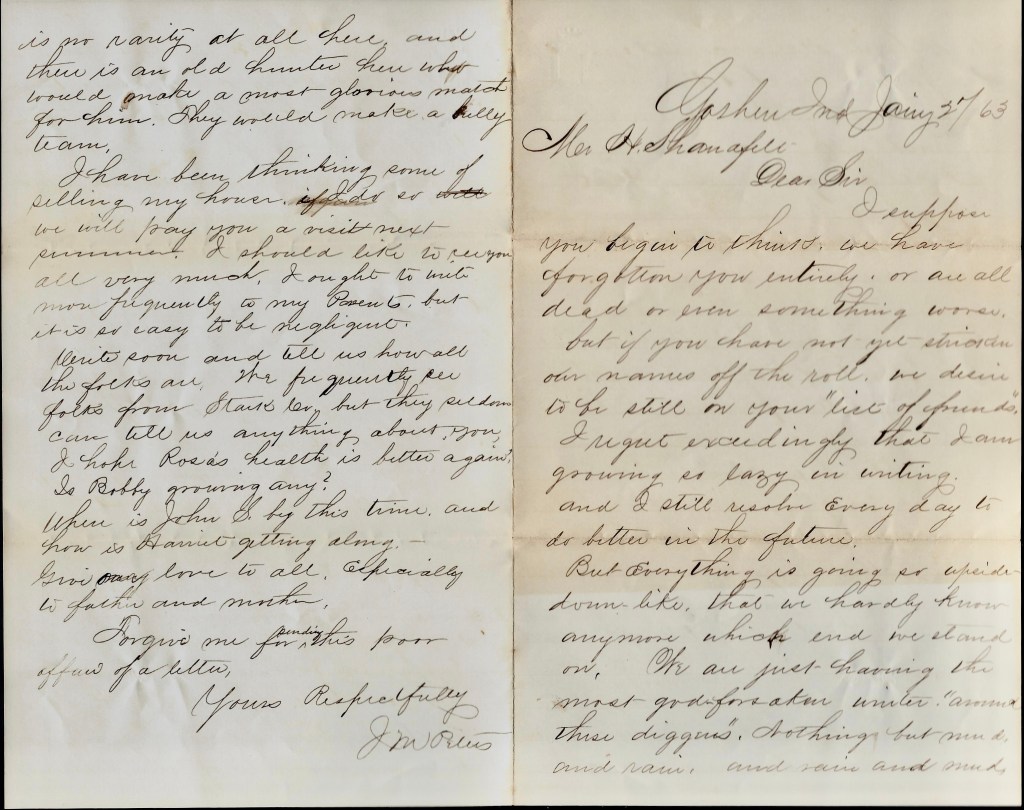 Goshen Ind Jany 27/63
Mr H. Shanafelt
Dear Sir
I suppose
you begin to think. we have
forgotton you entirely. or are all
dead or even something worse.
but if you have not yet stricken
our names off the roll. we desire
to be still on your "list of friends".
I regret exceedingly that I am
growing so lazy in writing.
and I still resolve Every day to
do better in the future.
But Everything is going so upside-
down-like. that we hardly know
anymore which end we stand
on. We are just having the
most godforsaken winter. "around
these diggins". Nothing but mud.
and rain. and rain and mud,
is no rarity at all here, and
there is an old hunter here who
would make a most glorious match
for him. They would make a bully
team.
I have been thinking some of
selling my house. if I do so will
we will pay you a visit next
summer. I should like to see you
all very much. I ought to write
more frequently to my Parents. but
it is so easy to be negligent.
Write soon and tell us how all
the folks are. We frequently see
folks from Stark Co, but they seldom
can tell us anything about you,
I hope Rosa's health is better again.
Is Bobby growing any?
Where is John S. by this time. and
how is Harriet getting along.—
Give our love to all. Especially
to father and mother,
Forgive me for sending this poor
affair of a letter,
Yours Respectfully
J M Peters